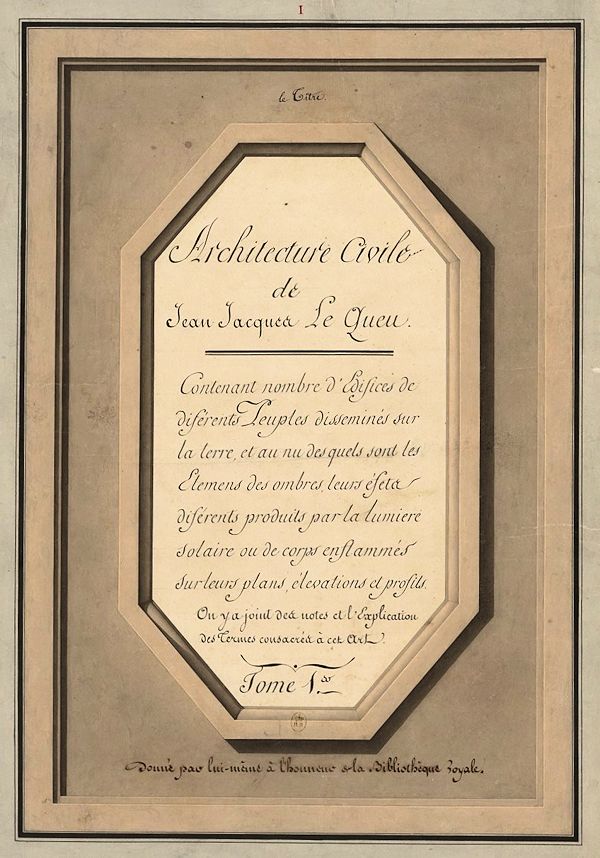 I
le Titre.
Architecture Civile
de
Jean Jacques Le Queu.
Contenant nombre d'Edifices de
diférents Peuples disseminés sur
la terre, et au nu desquels sont les
Elemens des ombres, leurs éfets
diférents produits par la lumiere
solaire ou de corps enflammés
sur leurs plans, élevations et profils.
On y a joint des notes et l'Explication
des Termes consacrés à cet Art.
Tome 1.er
Donné par lui-même à l'honneur de la Bibliothèque Royale.